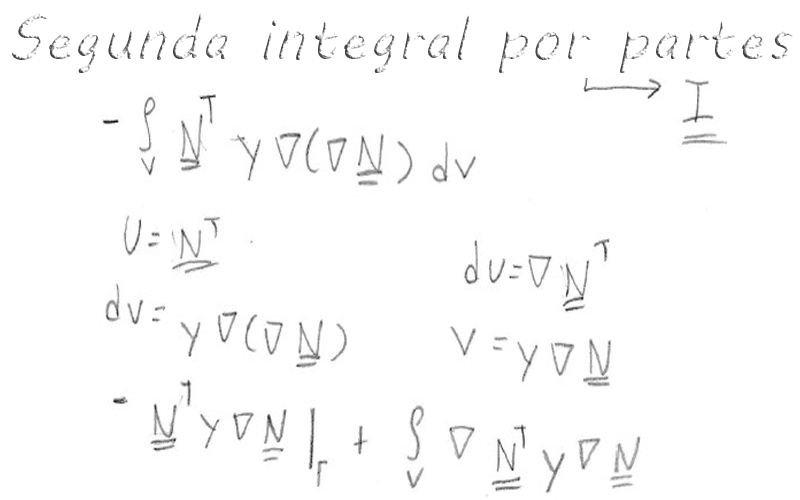 Segunda integral por partes
↳ I
- ∫_V N^T γ ∇(∇N) dv
U = N^T
du = ∇N^T
dv = γ ∇(∇N)
V = γ ∇N
- N^T γ ∇N |_Γ + ∫_V ∇N^T γ ∇N